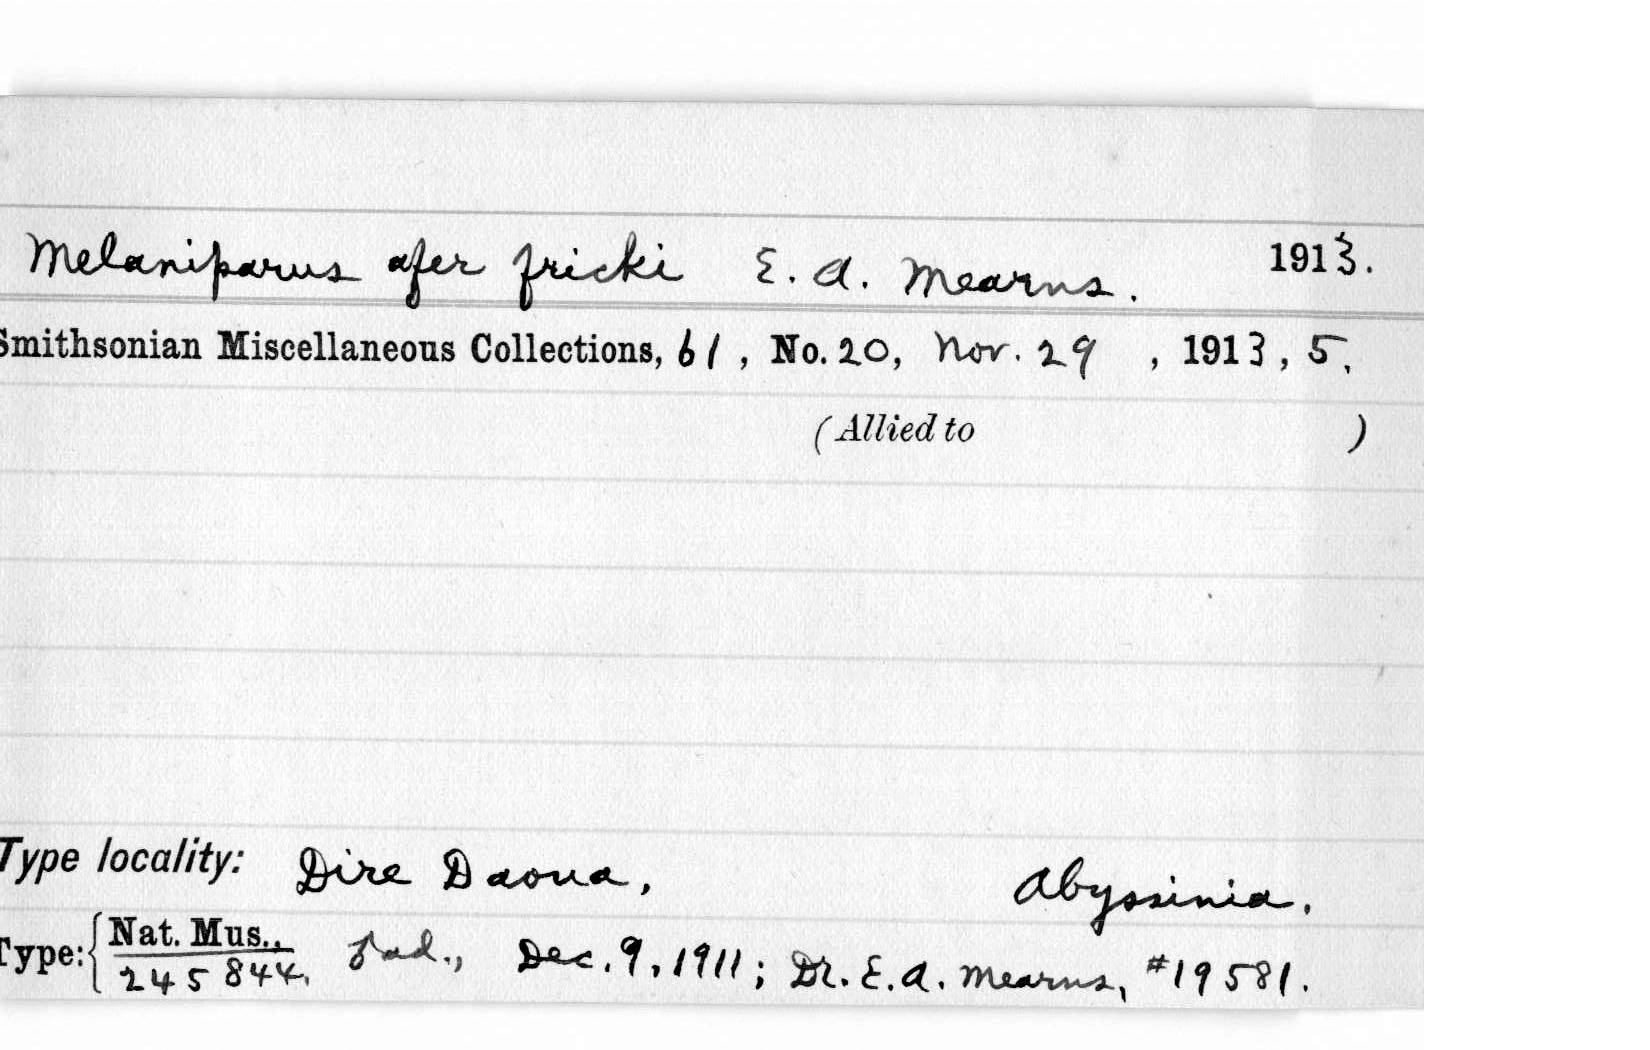 Melaniparus afer fricki E. A. Mearns. 1913.
Smithsonian Miscellaneous Collections, 61, No. 20, Nov. 29, 1913, 5.
(Allied to )
Type locality: Dire Daoua, Abyssinia.
Type: { Nat. Mus.,
245844. ad., Dec. 9, 1911; Dr. E. A. Mearns, #19581.